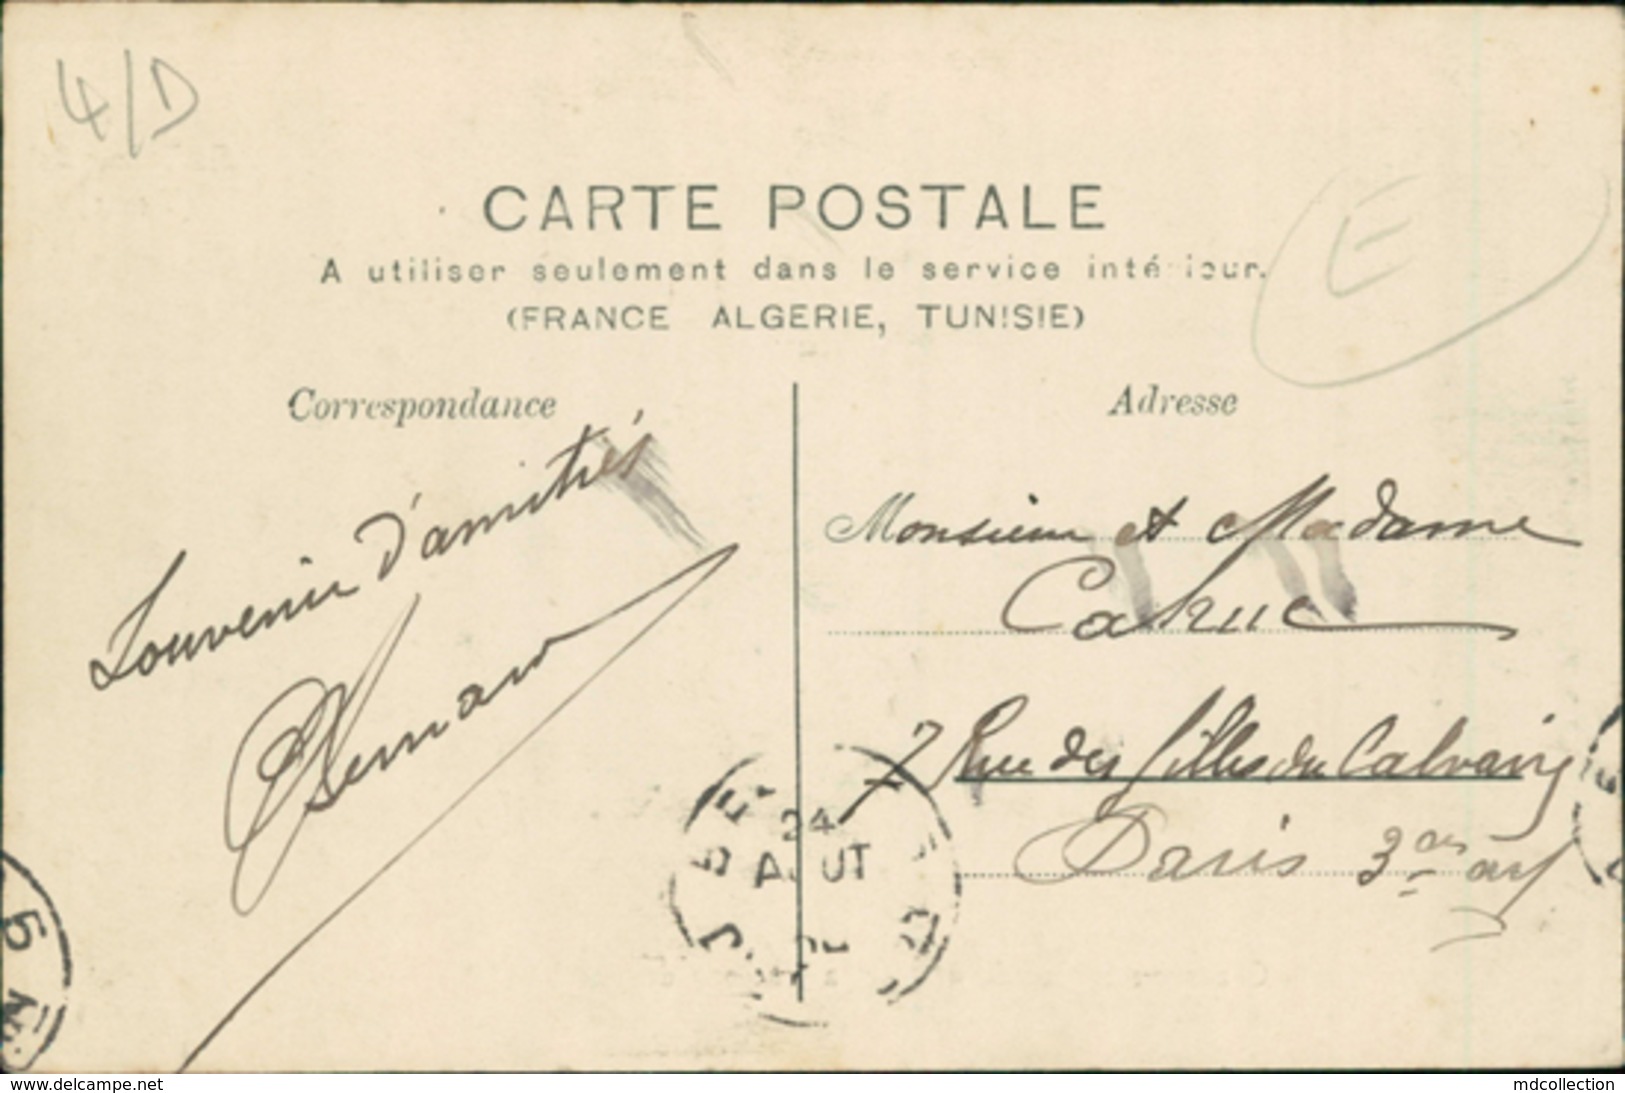 4/D
CARTE POSTALE
A utiliser seulement dans le service intérieur.
(FRANCE ALGERIE, TUNISIE)
E
Correspondance
Adresse
Souvenir d'amitiés
Monsieur et Madame
7 Rue des filles du Calvaire
Paris 3
24
AOUT
www.delcampe.net
mdcollection